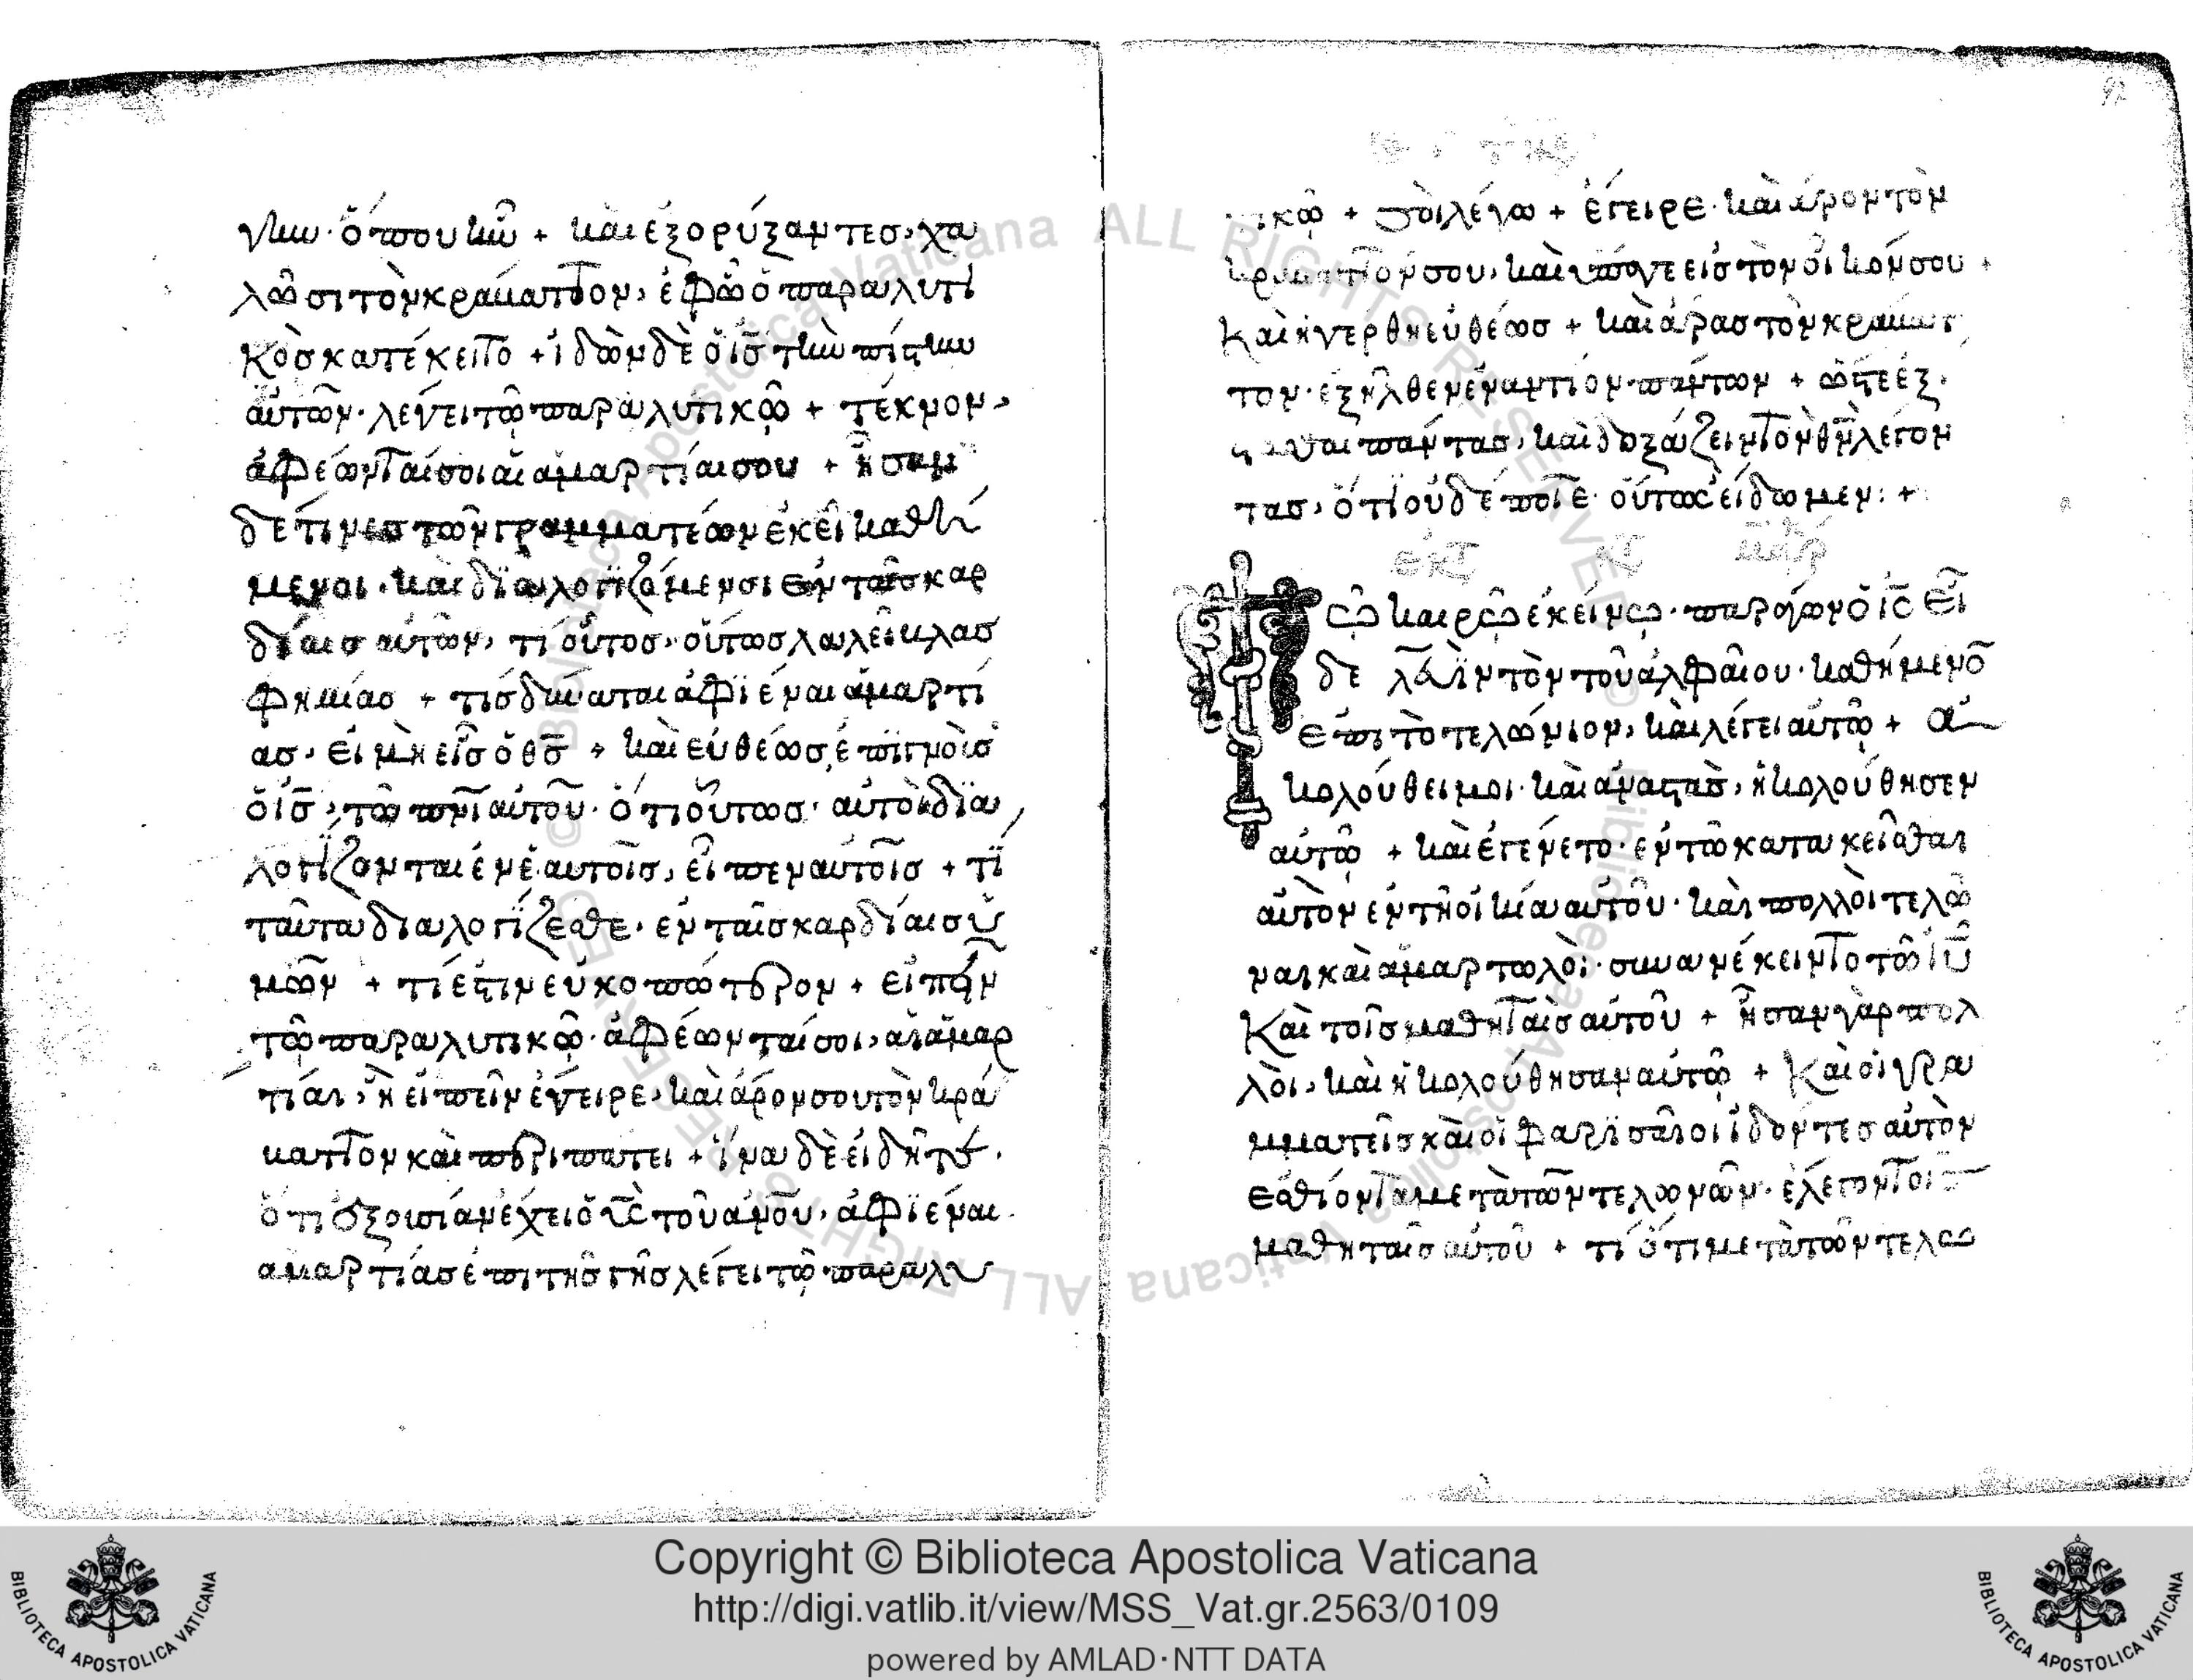 γην· ὅπου ἦν + καὶ ἐξορύξαντες, χα
λῶσι τὸν κράβαττον, ἐφ ᾧ ὁ παραλυτι
κὸς κατέκειτο + ἰδὼν δὲ ὁ ις̅ τὴν πίστιν
αὐτῶν· λέγει τῷ παραλυτικῷ + τέκνον,
ἀφέωνταί σοι αἱ ἁμαρτίαι σου + ἦσαν
δέ τινες τῶν γραμματέων ἐκεῖ καθή
μενοι· καὶ διαλογιζόμενοι ἐν ταῖς καρ
δίαις αὐτῶν, τί οὗτος· οὕτως λαλεῖ βλασ
φημίας + τίς δύναται ἀφϊέναι ἁμαρτί
ας· εἰ μὴ εἷς ὁ θς̅ + καὶ εὐθέως, ἐπϊγνοὺς
ὁ ις̅, τῷ πνι̅ αὐτοῦ· ὅτι οὕτως· αὐτοὶ δϊα
λογίζονται ἐν ἑαυτοῖς, εἶπεν αὐτοῖς + τί
ταῦτα διαλογίζεσθε· ἐν ταῖς καρδίαις ὑ
μῶν + τί ἐστιν εὐκοπώτερον + εἰπεῖν
τῷ παραλυτικῷ· ἀφέωνταί σοι, αἱ ἁμαρ
τίαι, ἢ εἰπεῖν ἔγειρε, καὶ ἆρόν σου τὸν κρά
βαττον καὶ περιπάτει + ἵνα δὲ εἰδῆτε·
ὅτι ἐξουσίαν ἔχει ὁ υς̅ τοῦ ανου̅, ἀφϊέναι
ἁμαρτίας ἐπὶ τῆς γῆς λέγει τῷ παραλυ
92
τικῷ + σοὶ λέγω + ἔγειρε· καὶ ἆρον τὸν
κράβαττόν σου, καὶ ὕπαγε εἰς τὸν οἶκόν σου +
καὶ ἠγέρθη εὐθέως + καὶ ἄρας τὸν κράβατ
τον· ἐξῆλθεν ἐναντίον πάντων + ὥστε ἐξ
ίστασθαι πάντας, καὶ δοξάζειν τὸν θν̅ λέγον
τας, ὅτι οὐδέποτε· οὕτως εἴδωμεν: +
Τῷ καιρῷ ἐκείνῳ· παράγων ὁ ις̅ εἶ
δε λευῒν τὸν τοῦ ἀλφαίου· καθήμενο̅
ἐπὶ τὸ τελώνιον, καὶ λέγει αὐτῷ + ἀ
κολούθει μοι· καὶ ἀναστὰς, ἠκολούθησεν
αὐτῷ + καὶ ἐγένετο· ἐν τῷ κατακεῖσθαι
αὐτὸν ἐν τῇ οἰκίᾳ αὐτοῦ· καὶ πολλοὶ τελῶ
ναι καὶ ἁμαρτωλοὶ· συνανέκειντο τῷ ιυ̅
καὶ τοῖς μαθηταῖς αὐτοῦ + ἦσαν γὰρ πολ
λοὶ, καὶ ἠκολούθησαν αὐτῷ + καὶ οἱ γρα
μματεῖς καὶ οἱ φαρϊσαῖοι ἰδόντες αὐτὸν
ἐσθίοντα μετὰ τῶν τελωνῶν· ἔλεγον τοῖς
μαθηταῖς αὐτοῦ + τί ὅτι μετὰ τῶν τελω
Copyright © Biblioteca Apostolica Vaticana
http://digi.vatlib.it/view/MSS_Vat.gr.2563/0109
powered by AMLAD·NTT DATA
BIBLIOTECA APOSTOLICA VATICANA
BIBLIOTECA APOSTOLICA VATICANA
© Biblioteca Apostolica Vaticana ALL RIGHTS RESERVED
© Biblioteca Apostolica Vaticana ALL RIGHTS RESERVED